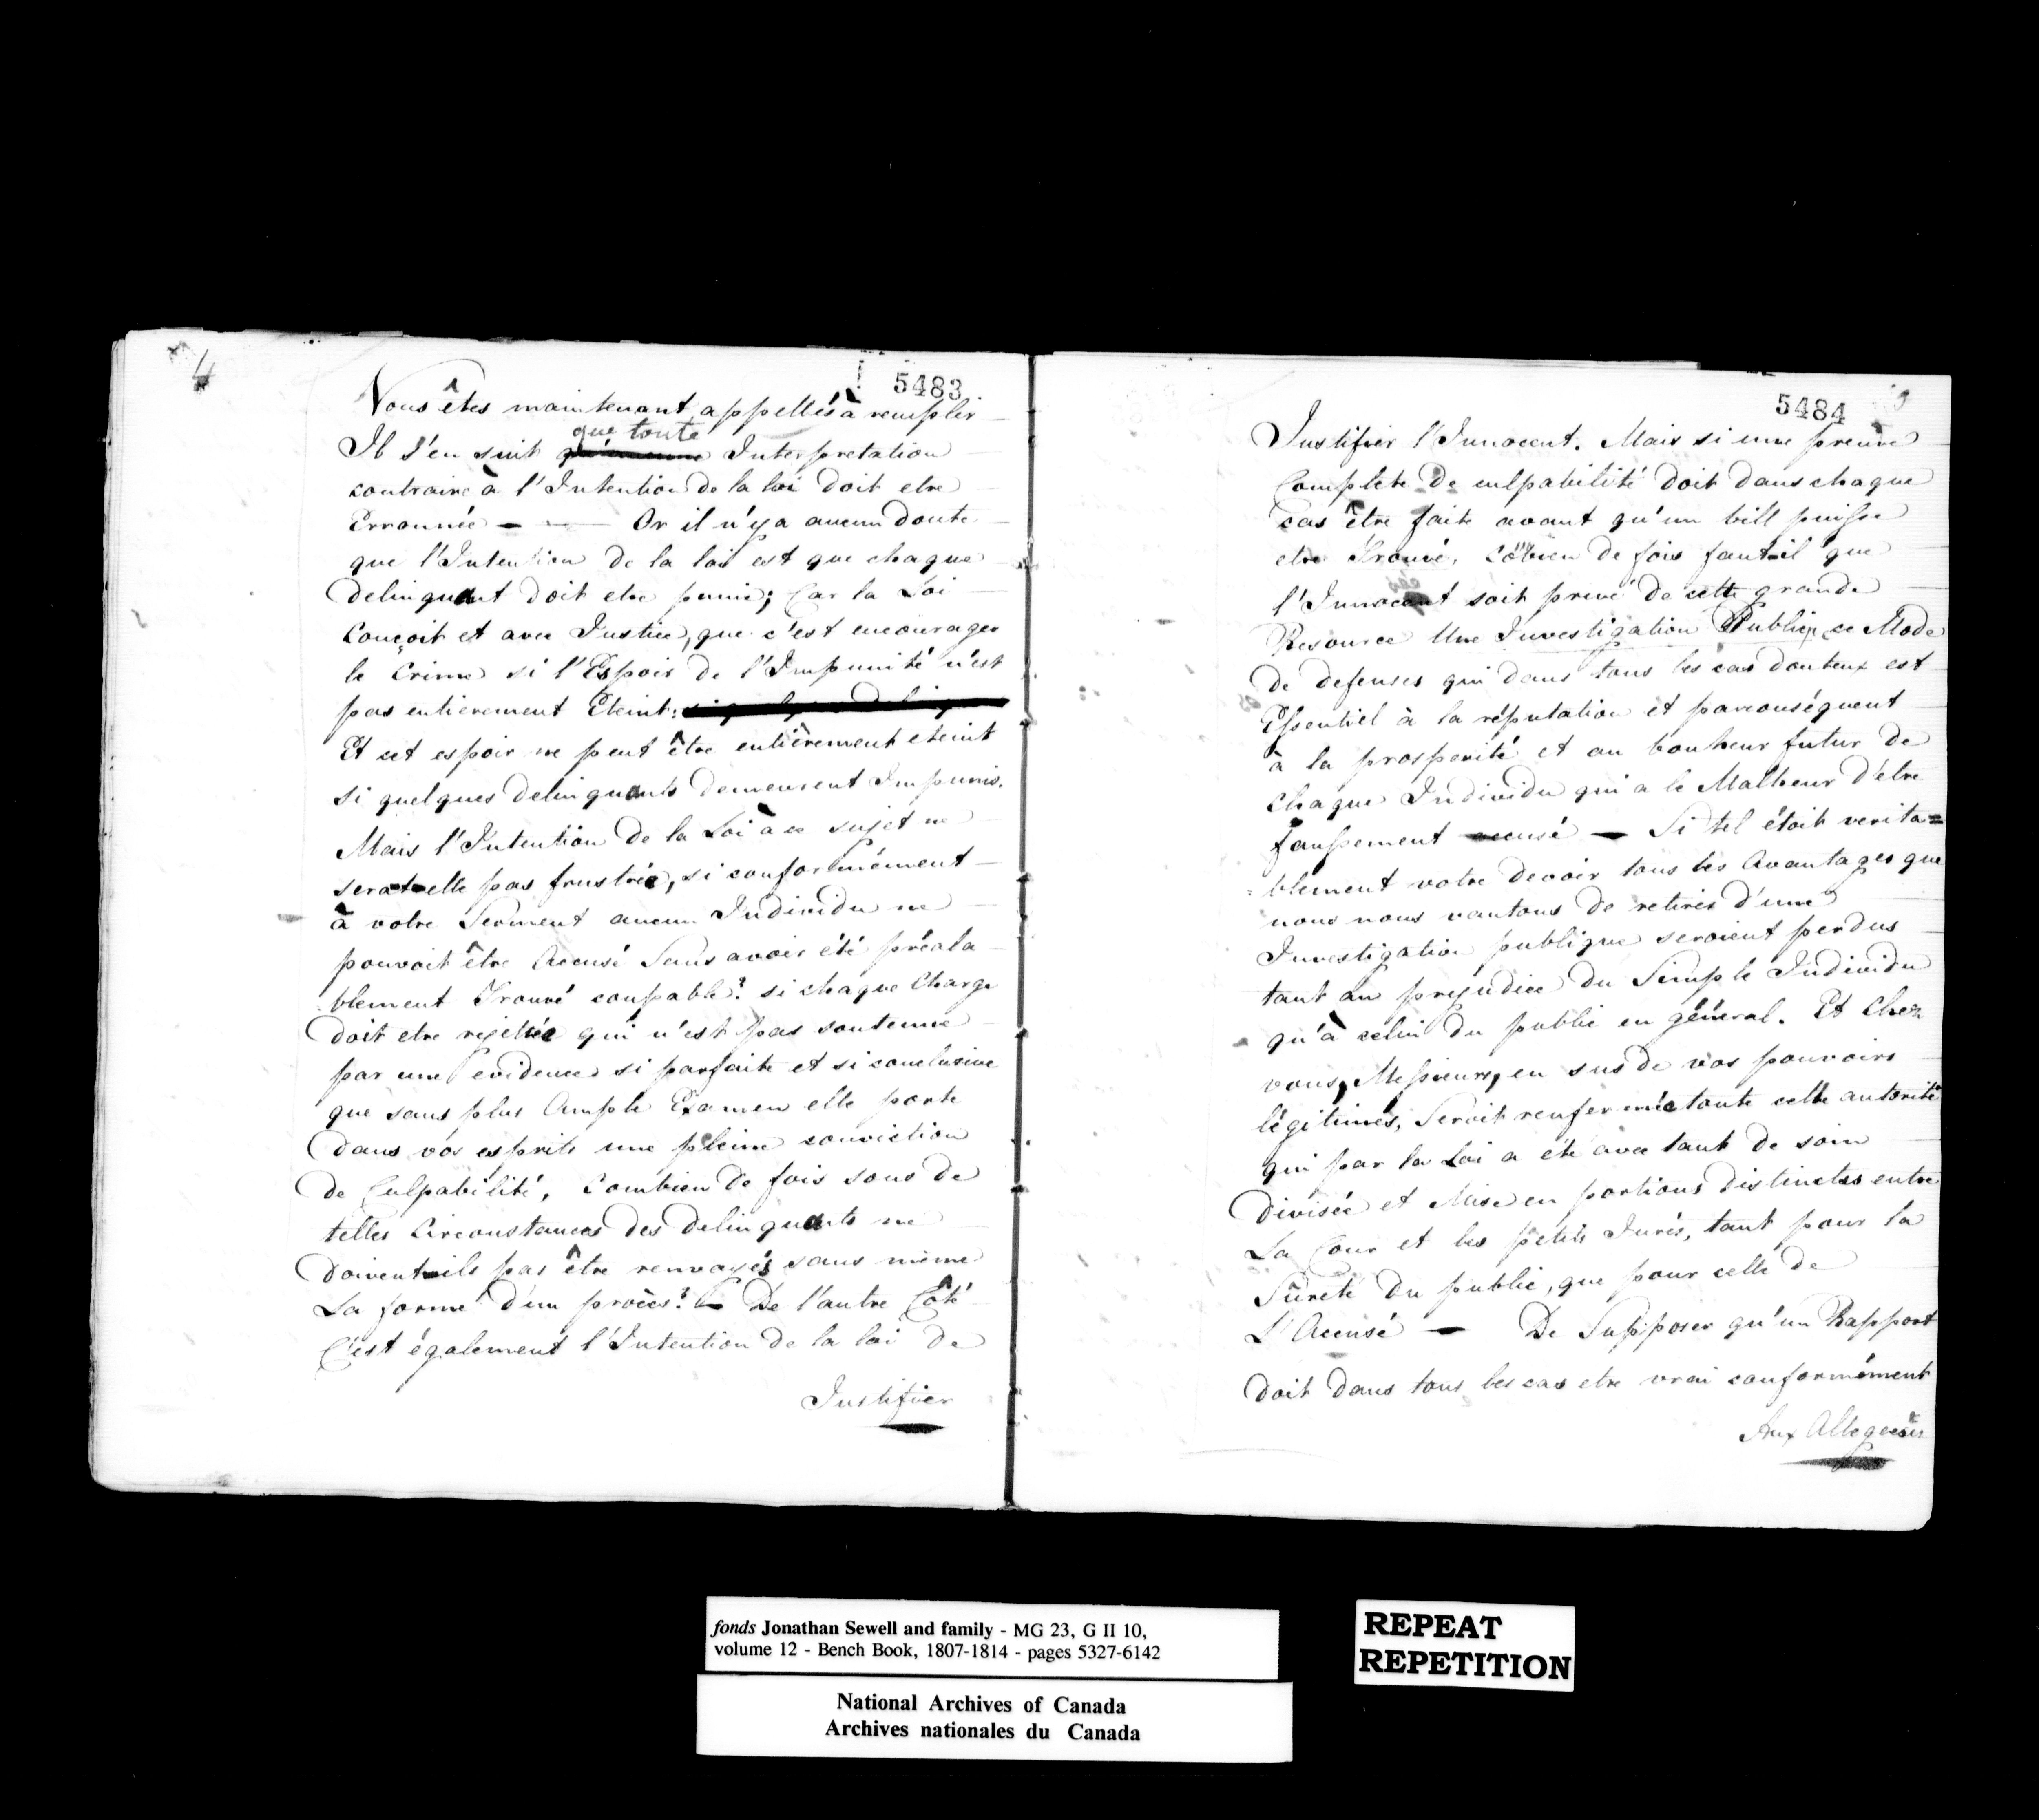 4
5483
Vous êtes maintenant appellés à remplir
que toute
Il s'en suit qu'aucune Interpretation
contraire à l'Intention de la loi doit etre
Erronnée — Or il n'y a aucun doute
que l'Intention de la loi est que chaque
delinquant doit etre puni; Car la Loi
Conçoit et avec Justice, que c'est encourager
le Crime si l'Espoir de l'Impunité n'est
pas entierement Eteint:
Et cet espoir ne peut être entièrement eteint
si quelques delinquants demeurent Impunis.
Mais l'Intention de la Loi à ce sujet ne
sera-t-elle pas frustrée, si conformément
à votre Serment aucun Individu ne
pouvoit être Accusé Sans avoir été préala
blement Trouvé coupable? si chaque Charge
doit etre rejettée qui n'est pas soutenue
par une evidence si parfaite et si conclusive
que sans plus Ample Examen elle porte
dans vos esprits une pleine conviction
de Culpabilité, Combien de fois sous de
telles Circonstances des delinquants ne
doivent-ils pas être renvoyés sans même
La forme d'un procès? — De l'autre Côté
C'est également l'Intention de la loi de
Justifier
5484
Justifier l'Innocent. Mais si une preuve
Complete de culpabilité doit dans chaque
Cas être faite avant qu'un bill puisse
etre Trouvé, cöbien de fois faut-il que
l'Innocent soit privé de cette grande
Resource Une Investigation Publiq, ce Mode
de defenses qui dans tous les cas douteux est
Essentiel à la réputation et parconséquent
à la prosperité et au bonheur futur de
Chaque Individu qui a le Malheur d'etre
faussement accusé — Si tel étoit verita=
=blement votre devoir tous les Avantages que
nous nous vantons de retirer d'une
Investigation publique seroient perdus
tant au prejudice du Simple Individu
qu'à celui du public en géneral. Et Chez
vous, Messieurs, en sus de vos pouvoirs
légitimes, Seroit renfermée toute cette autorité
qui par la Loi a été avec tant de soin
Divisée et Mise en portions distinctes entre
La Cour et les petits Jurés, tant pour la
Sûreté du public, que pour celle de
L'Accusé — De Supposer qu'un Rapport
doit dans tous les cas etre vrai conformément
Aux Allegeés
fonds Jonathan Sewell and family - MG 23, G II 10,
volume 12 - Bench Book, 1807-1814 - pages 5327-6142
National Archives of Canada
Archives nationales du Canada
REPEAT
REPETITION